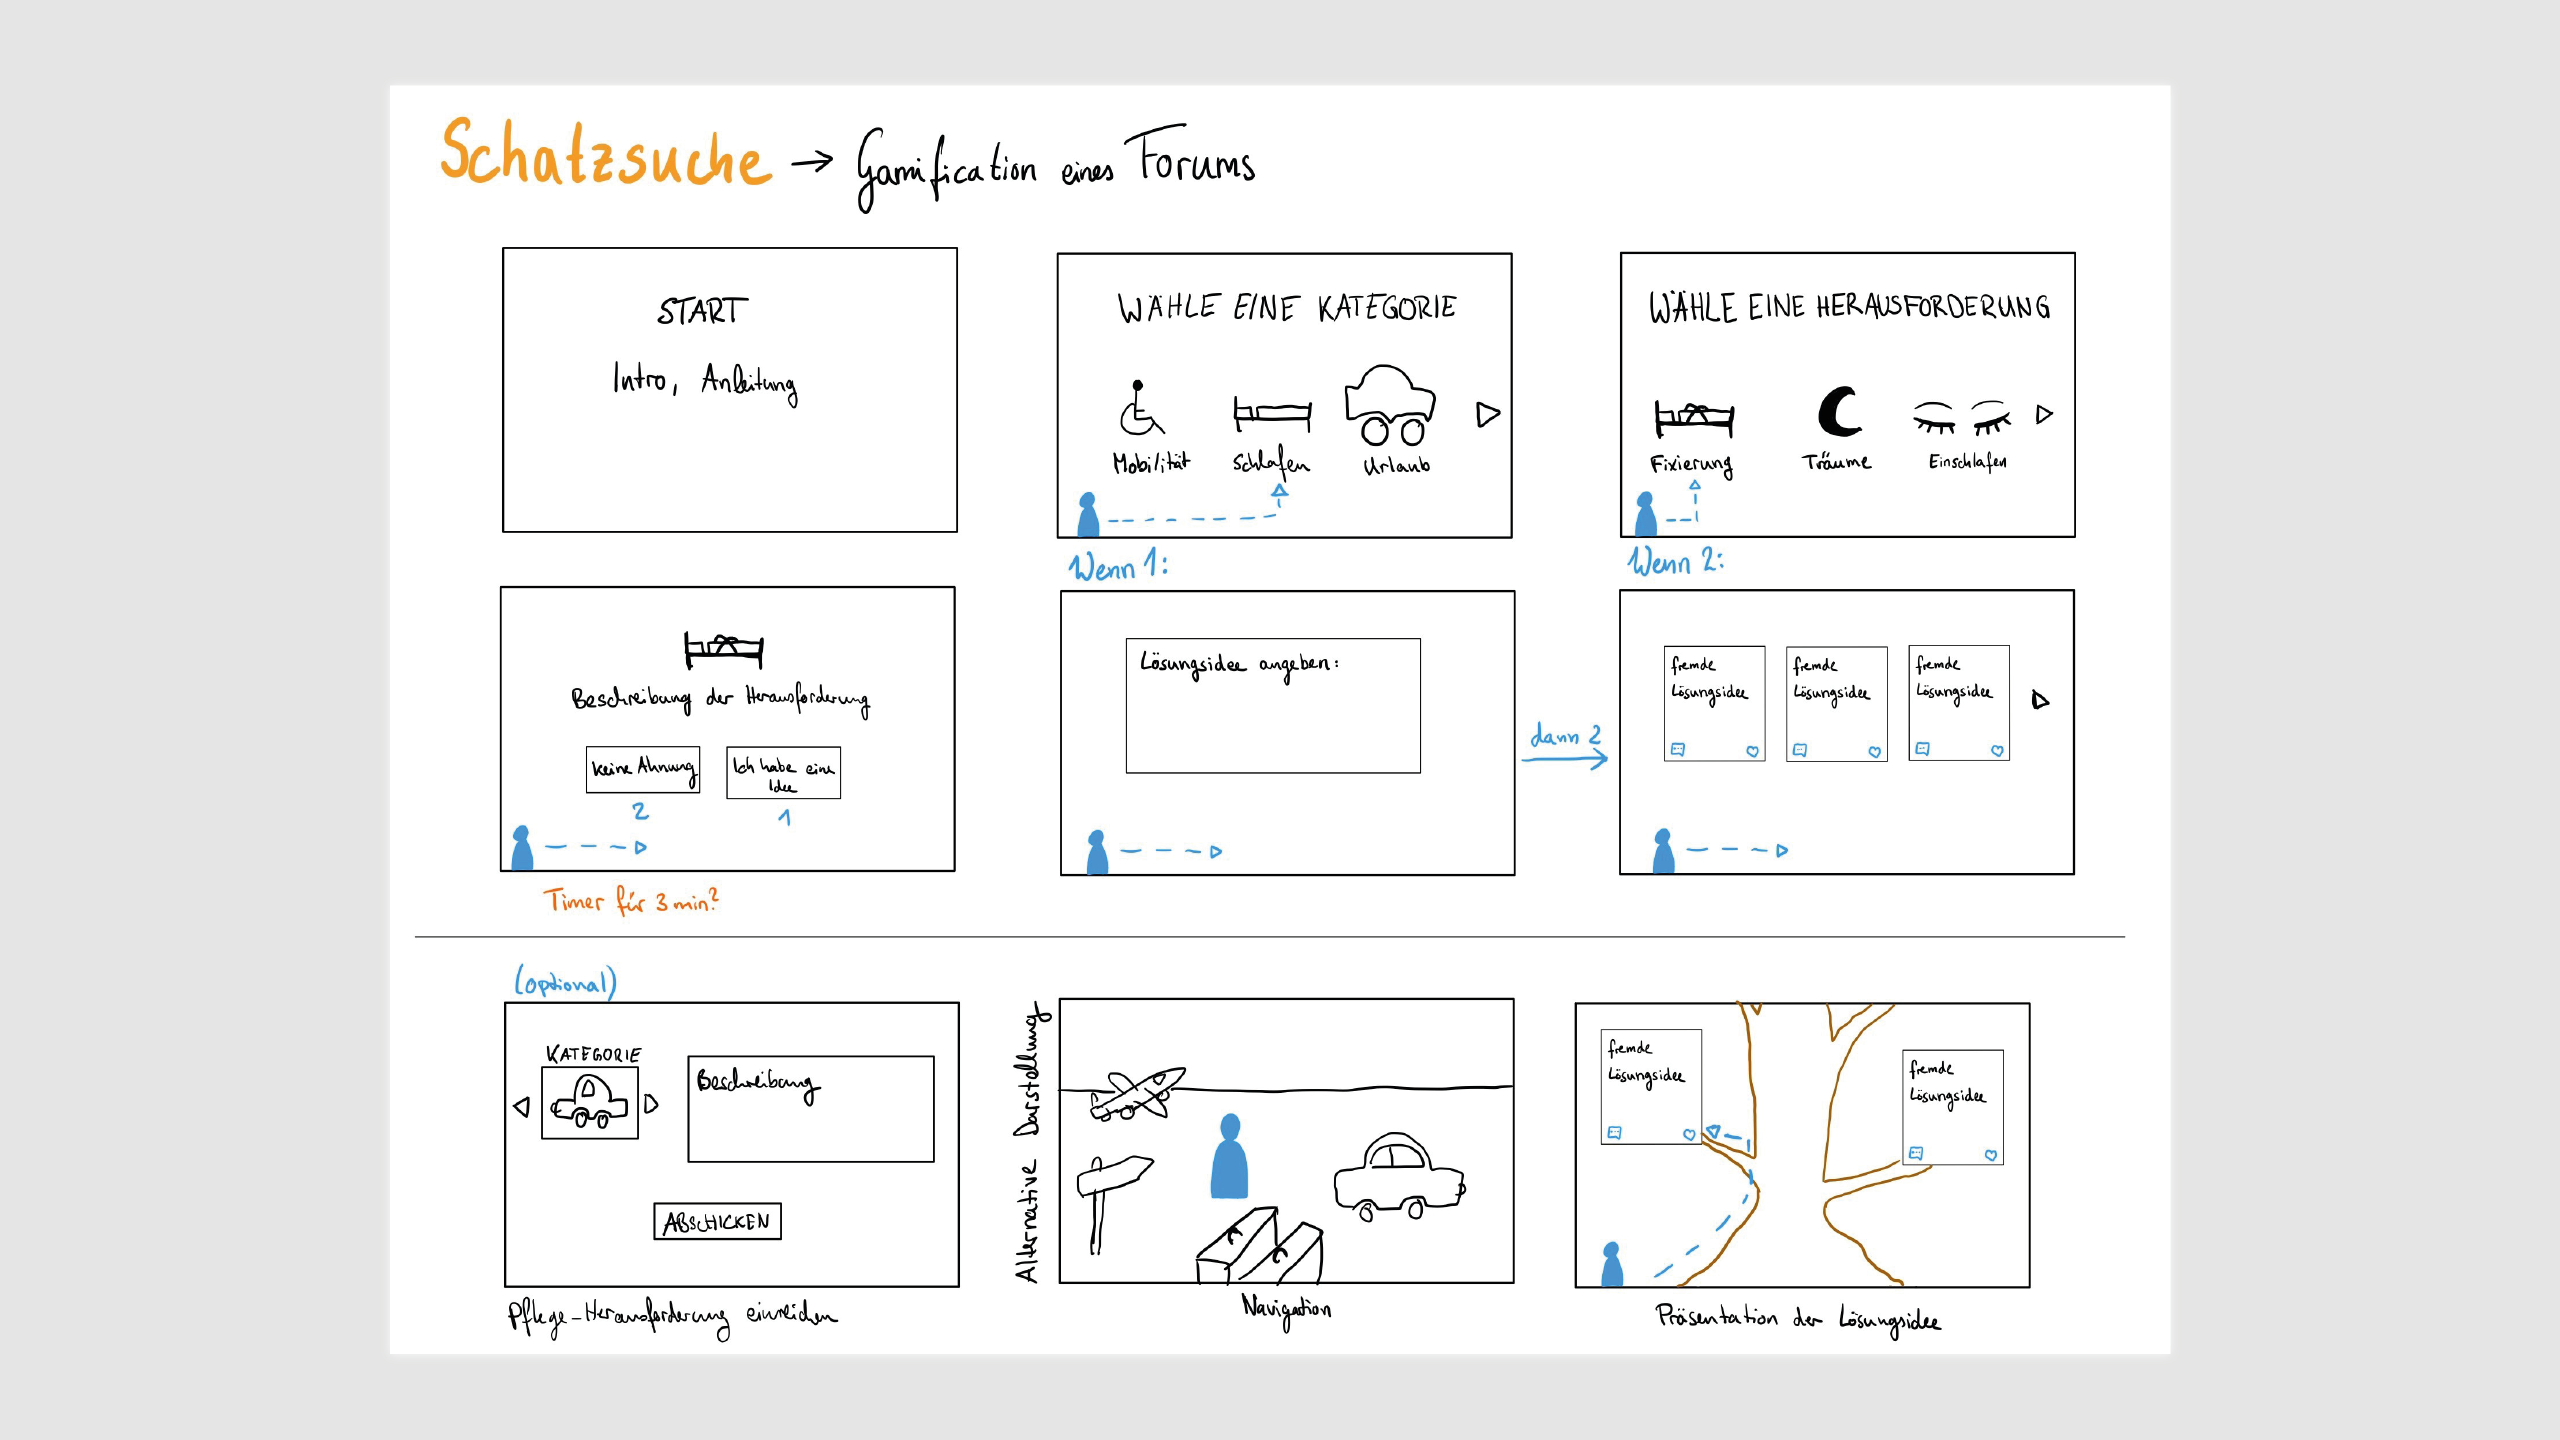 Schatzsuche → Gamification eines Forums
START
Intro, Anleitung
WÄHLE EINE KATEGORIE
Mobilität
Schlafen
Urlaub
WÄHLE EINE HERAUSFORDERUNG
Fixierung
Träume
Einschlafen
Beschreibung der Herausforderung
keine Ahnung
Ich habe eine
Idee
2
1
Timer für 3 min?
Wenn 1:
Lösungsidee angeben:
dann 2
Wenn 2:
fremde
Lösungsidee
fremde
Lösungsidee
fremde
Lösungsidee
(optional)
KATEGORIE
Beschreibung
ABSCHICKEN
Pflege-Herausforderung einreichen
Alternative Darstellung
Navigation
fremde
Lösungsidee
fremde
Lösungsidee
Präsentation der Lösungsidee